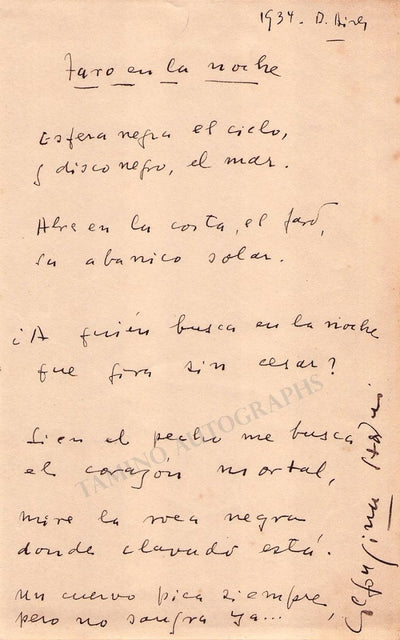 1934. B. Aires
Faro en la noche
Esfera negra el cielo,
y disco negro, el mar.
Abre en la costa, el faro,
su abanico solar.
¿A quién busca en la noche
que gira sin cesar?
Si en el pecho me busca
el corazón mortal,
mire la roca negra
donde clavado está.
Un cuervo pica siempre,
pero no sangra ya...
TAMINO AUTOGRAPHS